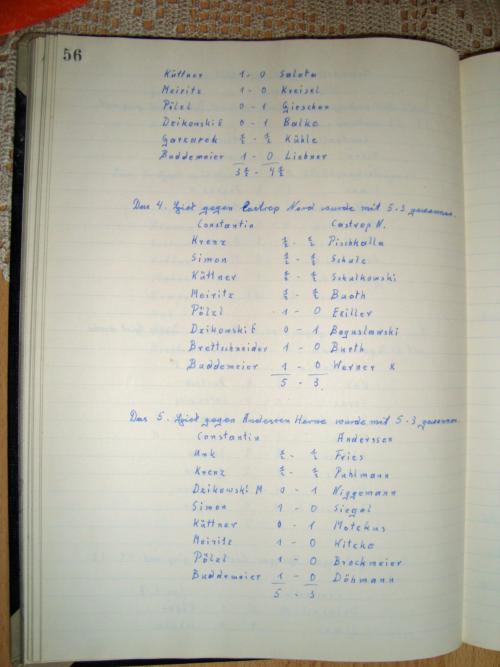 56
Küttner 1 - 0 Salata
Meiritz 1 - 0 Kreisel
Pölzl 0 - 1 Gieschen
Dzikonski E 0 - 1 Balke
Garkarek ½ - ½ Kühle
Buddemeier 1 - 0 Liebner
3½ - 4½
Das 4. Spiel gegen Castrop Nord wurde mit 5-3 gewonnen.
Constantin Castrop N.
Krenz ½ - ½ Pischkalla
Simon ½ - ½ Schulz
Küttner ½ - ½ Schulkowski
Meiritz ½ - ½ Buoth
Pölzl 1 - 0
Dzikonski E 0 - 1 Boguslawski
Brettschneider 1 - 0 Burth
Buddemeier 1 - 0 Werner K
5 - 3
Das 5. Spiel gegen Anderssen Herne wurde mit 5-3 gewonnen.
Constantin Anderssen
Unk ½ - ½ Fries
Krenz ½ - ½ Puhlmann
Dzikowski M 0 - 1 Niggemann
Simon 1 - 0 Siegal
Küttner 0 - 1 Motchus
Meiritz 1 - 0 Witcke
Pölzl 1 - 0 Brockmeier
Buddemeier 1 - 0 Döhmann
5 - 3